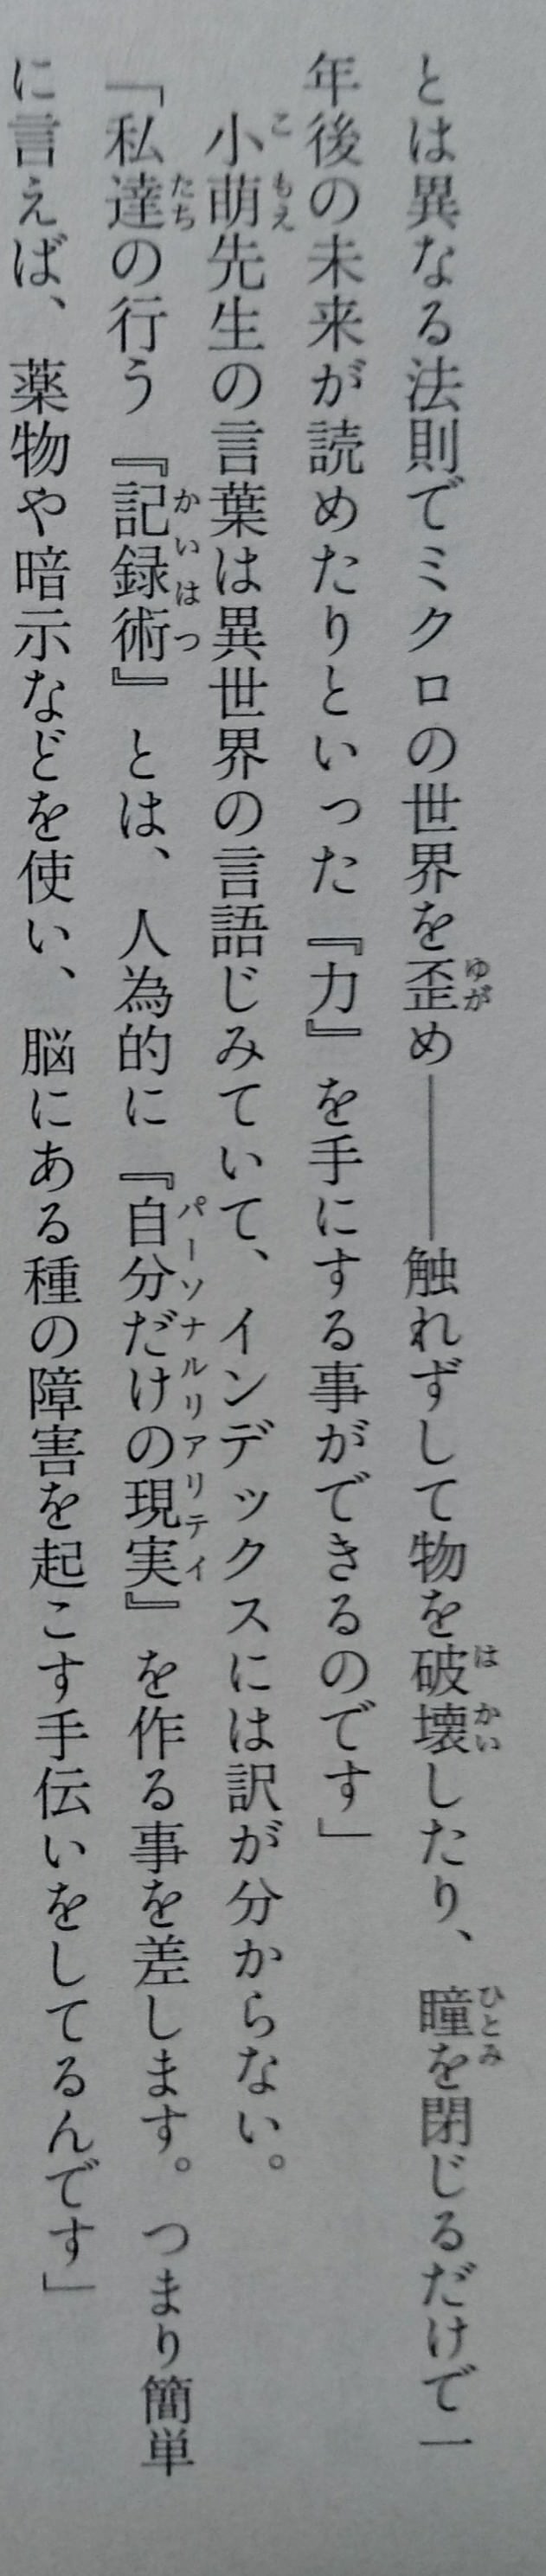 とは異なる法則でミクロの世界を歪め――触れずして物を破壊したり、瞳を閉じるだけで一
年後の未来が読めたりといった『力』を手にする事ができるのです」
小萌先生の言葉は異世界の言語じみていて、インデックスには訳が分からない。
「私達の行う『記録術』とは、人為的に『自分だけの現実』を作る事を差します。つまり簡単
に言えば、薬物や暗示などを使い、脳にある種の障害を起こす手伝いをしてるんです」